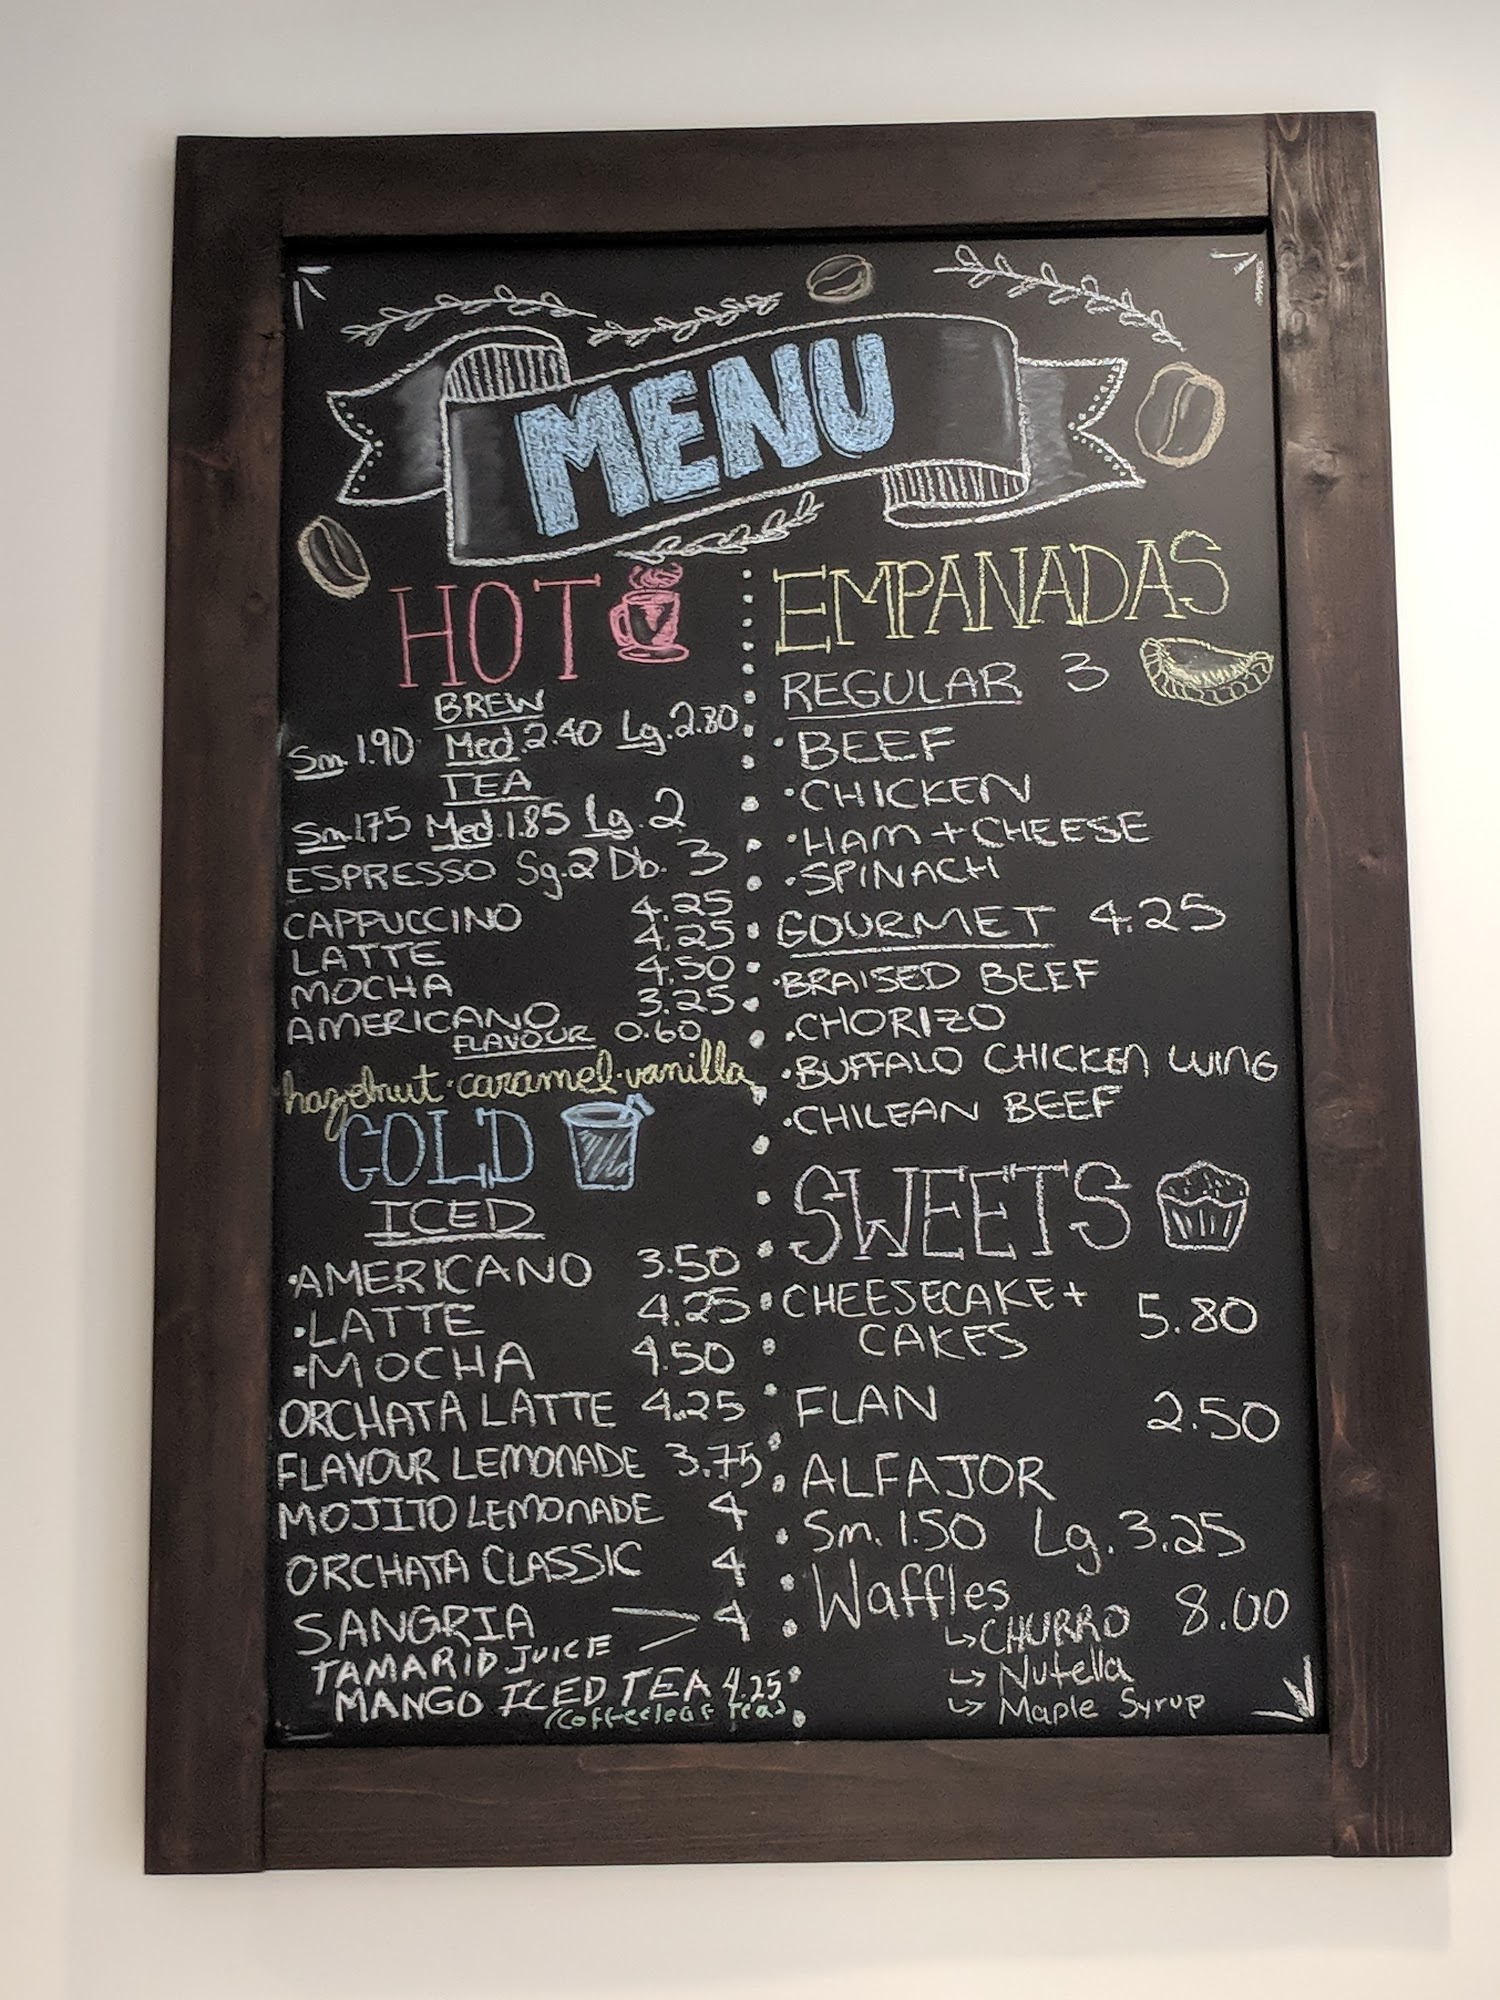 MENU
HOT
BREW
Sm. 1.90 Med. 2.40 Lg. 2.80
TEA
Sm. 1.75 Med. 1.85 Lg. 2
ESPRESSO Sg. 2 Db. 3
CAPPUCCINO 4.25
LATTE 4.25
MOCHA 4.50
AMERICANO 3.25
FLAVOUR 0.60
hazelnut · caramel · vanilla
COLD
ICED
·AMERICANO 3.50
·LATTE 4.25
·MOCHA 4.50
ORCHATA LATTE 4.25
FLAVOUR LEMONADE 3.75
MOJITO LEMONADE 4
ORCHATA CLASSIC 4
SANGRIA 4
TAMARID JUICE
MANGO ICED TEA 4.25
(Coffeeleaf Tea)
EMPANADAS
REGULAR 3
·BEEF
·CHICKEN
·HAM + CHEESE
·SPINACH
GOURMET 4.25
·BRAISED BEEF
·CHORIZO
·BUFFALO CHICKEN WING
·CHILEAN BEEF
SWEETS
CHEESECAKE + 5.80
CAKES
FLAN 2.50
ALFAJOR
Sm. 1.50 Lg. 3.25
Waffles 8.00
↳ CHURRO
↳ Nutella
↳ Maple Syrup